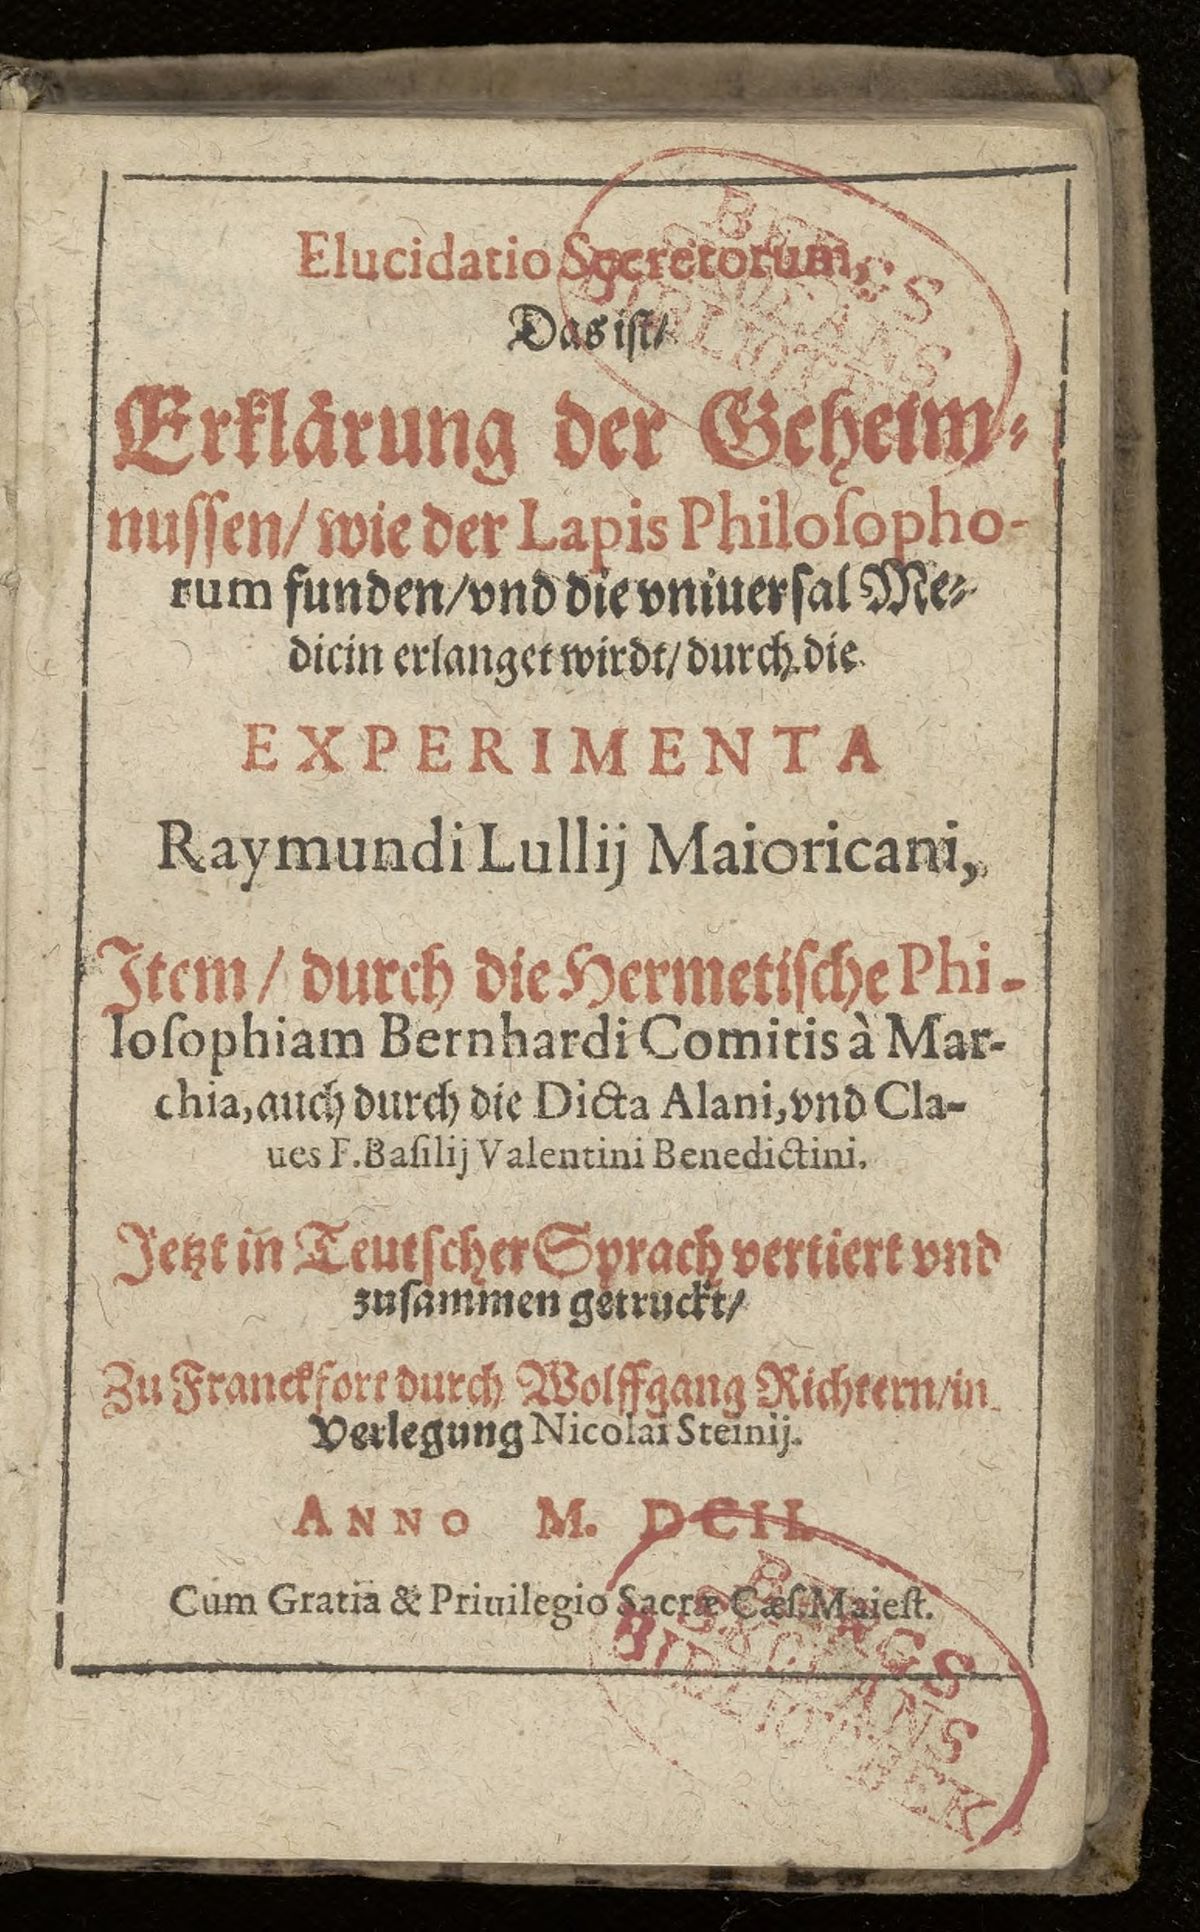 Elucidatio Secretorum,
Das ist/
Erklärung der Geheim-
nussen/ wie der Lapis Philoſopho-
rum funden/ vnd die vniuersal Me-
dicin erlanget wirdt/ durch die
EXPERIMENTA
Raymundi Lullij Maioricani,
Item/ durch die Hermetiſche Phi-
loſophiam Bernhardi Comitis à Mar-
chia, auch durch die Dicta Alani, vnd Cla-
ues F. Baſilij Valentini Benedictini.
Jetzt in Teutſcher Sprach vertiert vnd
zuſammen getruckt/
Zu Franckfort durch Wolffgang Richtern/ in
Verlegung Nicolai Steinij.
ANNO M. DCII.
Cum Gratia & Priuilegio Sacræ Cæſ. Maieſt.
BIBLIOTHEK